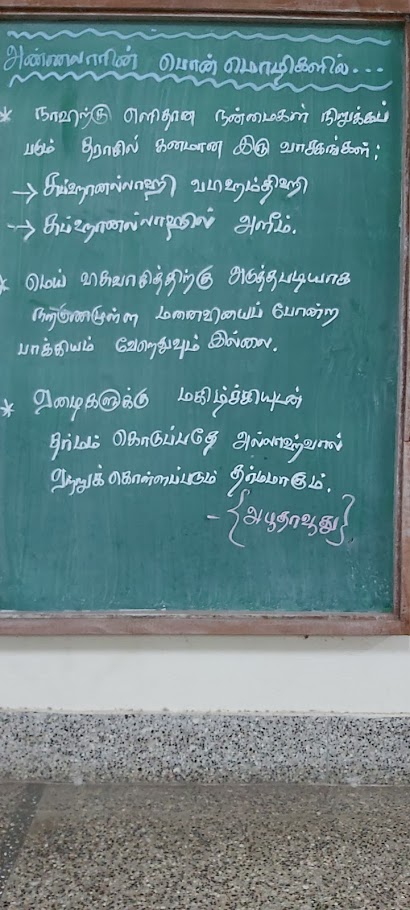 அண்ணலாரின் பொன் மொழிகளில்...
* நாவிற்கு எளிதான நன்மைகள் நிறுக்கப்
படும் தராசில் கனமான இரு வாசகங்கள்:
→ சுப்ஹானல்லாஹி வபிஹம்திஹி
→ சுப்ஹானல்லாஹில் அளீம்.
* மெய் விசுவாசத்திற்கு அடுத்தபடியாக
நற்குணமுள்ள மனைவியைப் போன்ற
பாக்கியம் வேறெதுவும் இல்லை.
* ஏழைகளுக்கு மகிழ்ச்சியுடன்
தர்மம் கொடுப்பதே அல்லாஹ்வால்
ஏற்றுக்கொள்ளப்படும் தர்மமாகும்.
- {அபூதாவூது}